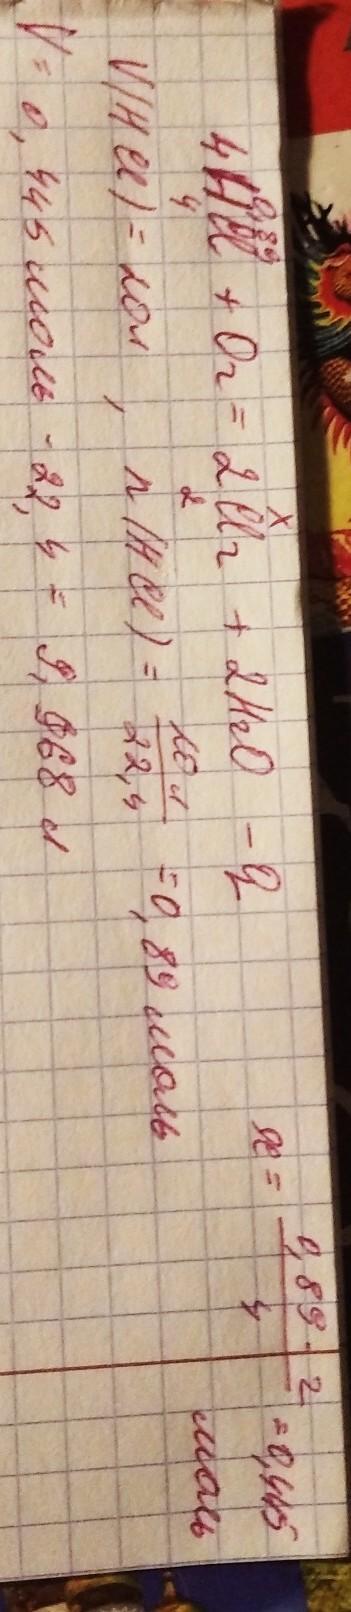 0,89 x
4HCl + O2 = 2Cl2 + 2H2O - Q
4 2
x = 0,89 · 2 / 4 = 0,445 моль
V(HCl) = 20л, n(HCl) = 20л / 22,4 = 0,89 моль
V = 0,445 моль · 22,4 = 9,968 л